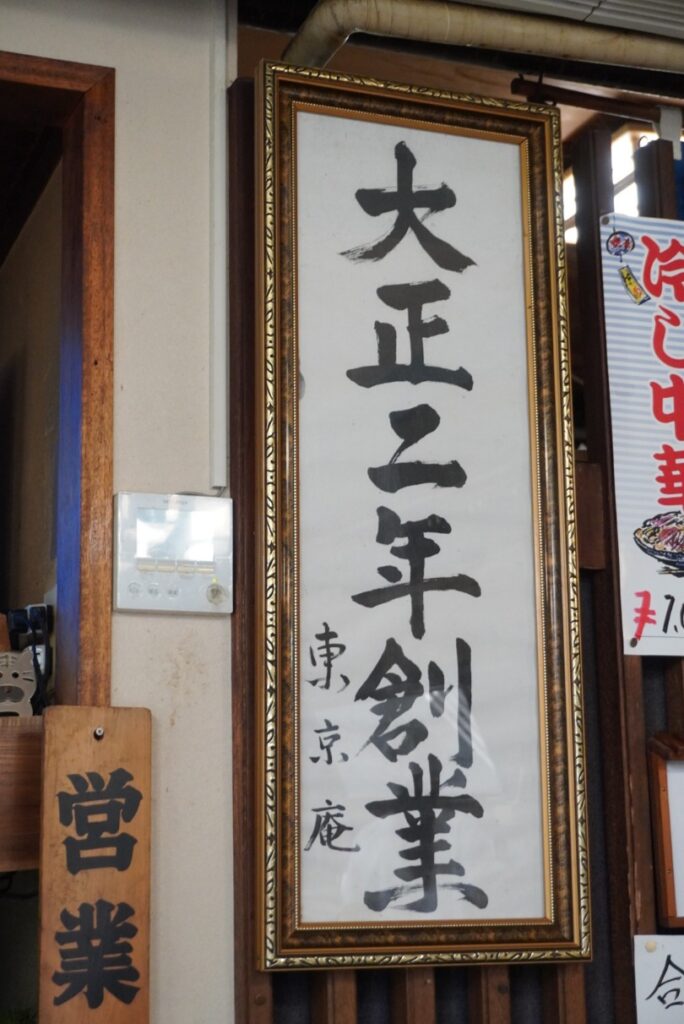 大正二年創業
東京庵
営業
冷し中華
合